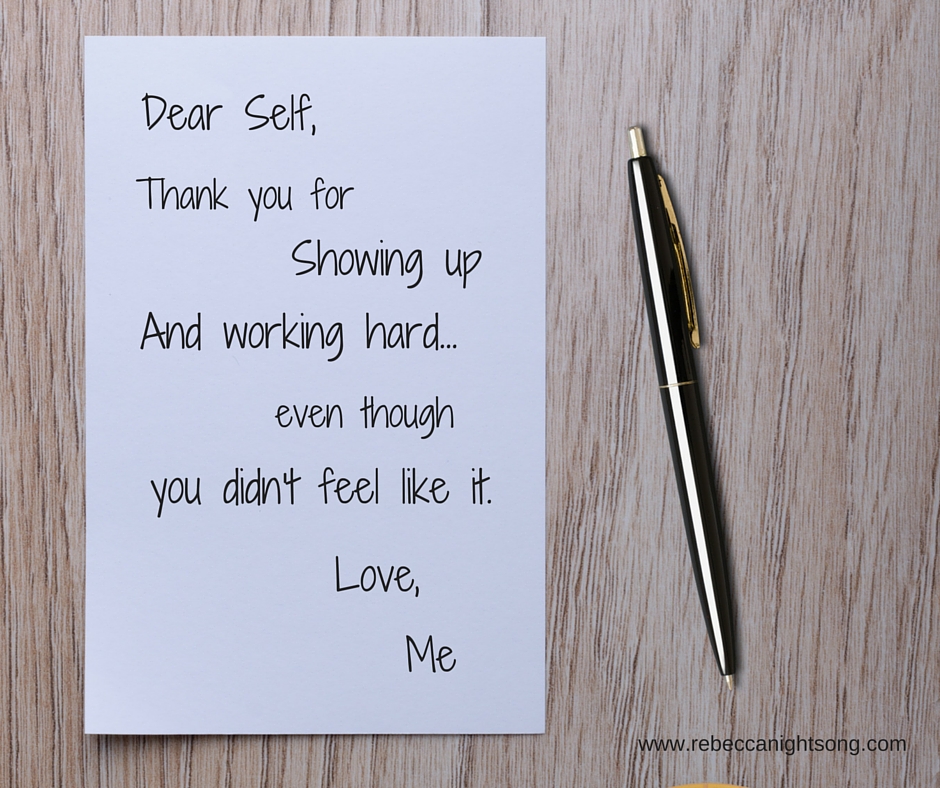 Dear Self,
Thank you for
Showing up
And working hard...
even though
you didn't feel like it.
Love,
Me
www.rebeccanightsong.com